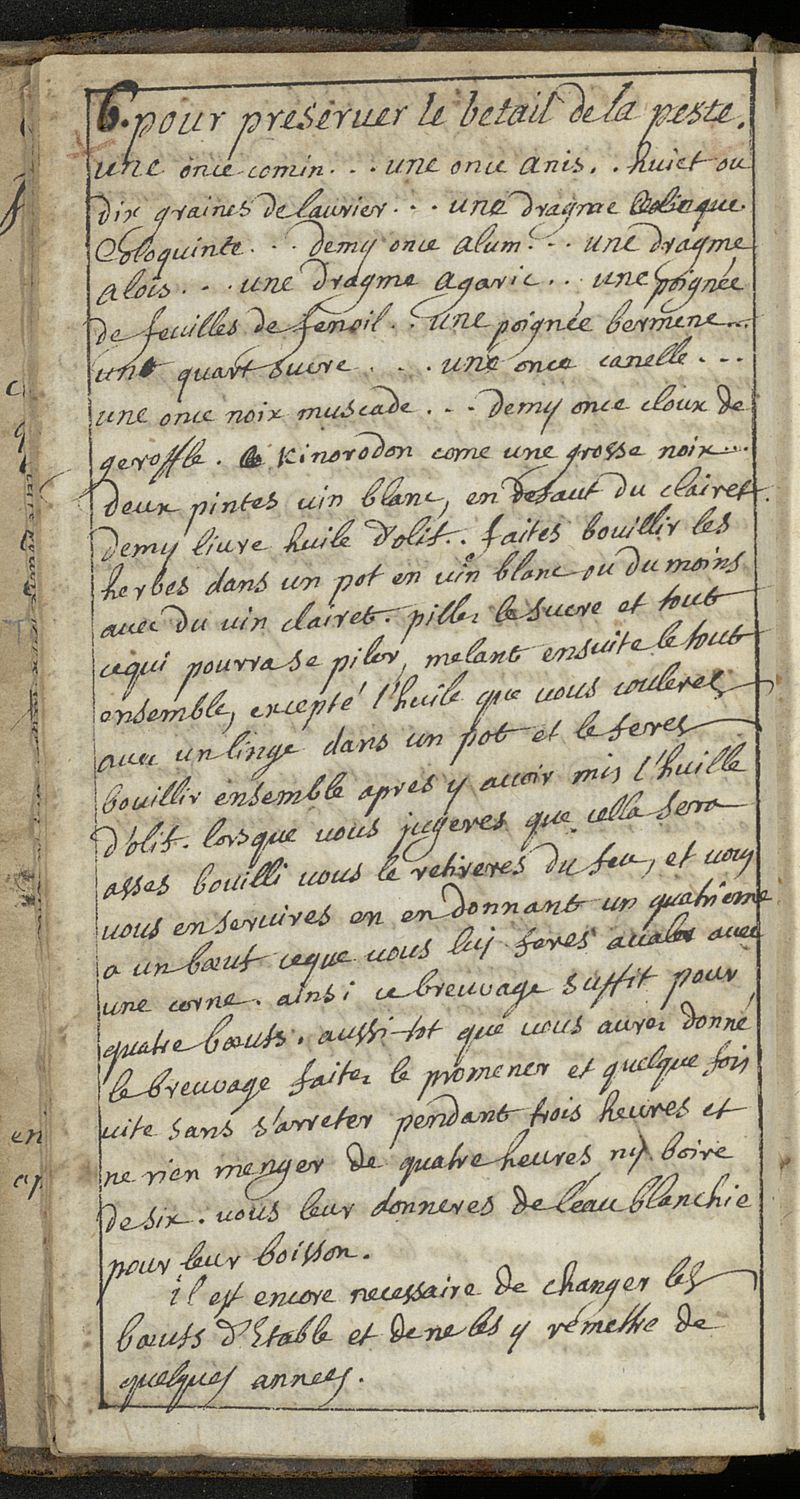 6. pour preseruer le betail de la peste.
une once comin. . . une once anis. . huict ou
dix graines de laurier. . . une dragme
Coloquinte. . . demy once alum. . . une dragme
alois. . . une dragme agaric. . une poignée
de feuilles de fenoil. . une poignée bermene...
un quart sucre . . . une once canelle. . .
une once noix muscade. . . demy once cloux de
geroffle. Kinorodon come une grosse noix...
deux pintes uin blanc, en defaut du clairet.
demy liure huile d'olif. . faites bouillir les
herbes dans un pot en uin blanc ou du moins
auec du uin clairet. pillez le sucre et tout
cequi pourra se piler, melant ensuite le tout
ensemble, excepté l'huile que uous couleres
auec un linge dans un pot et le feres
bouillir ensemble apres y auoir mis l'huille
d'olif. lorsque uous jugeres que cella sera
asses bouilli uous le retireres du feu, et uous
uous en seruires en en donnant un quatrieme
a un bœuf ceque uous luy feres aualer auec
une corne. ainsi ce breuuage suffit pour
quatre bœufs. aussi-tot que uous aurez donné
le breuuage faitez le promener et quelque fois
uite sans s'arreter pendant trois heures et
ne rien menger de quatre heures ny boire
de six. uous leur donneres de l'eau blanchie
pour leur boisson.
il est encore necessaire de changer les
bœufs d'Etable et de ne les y remettre de
quelques annees.